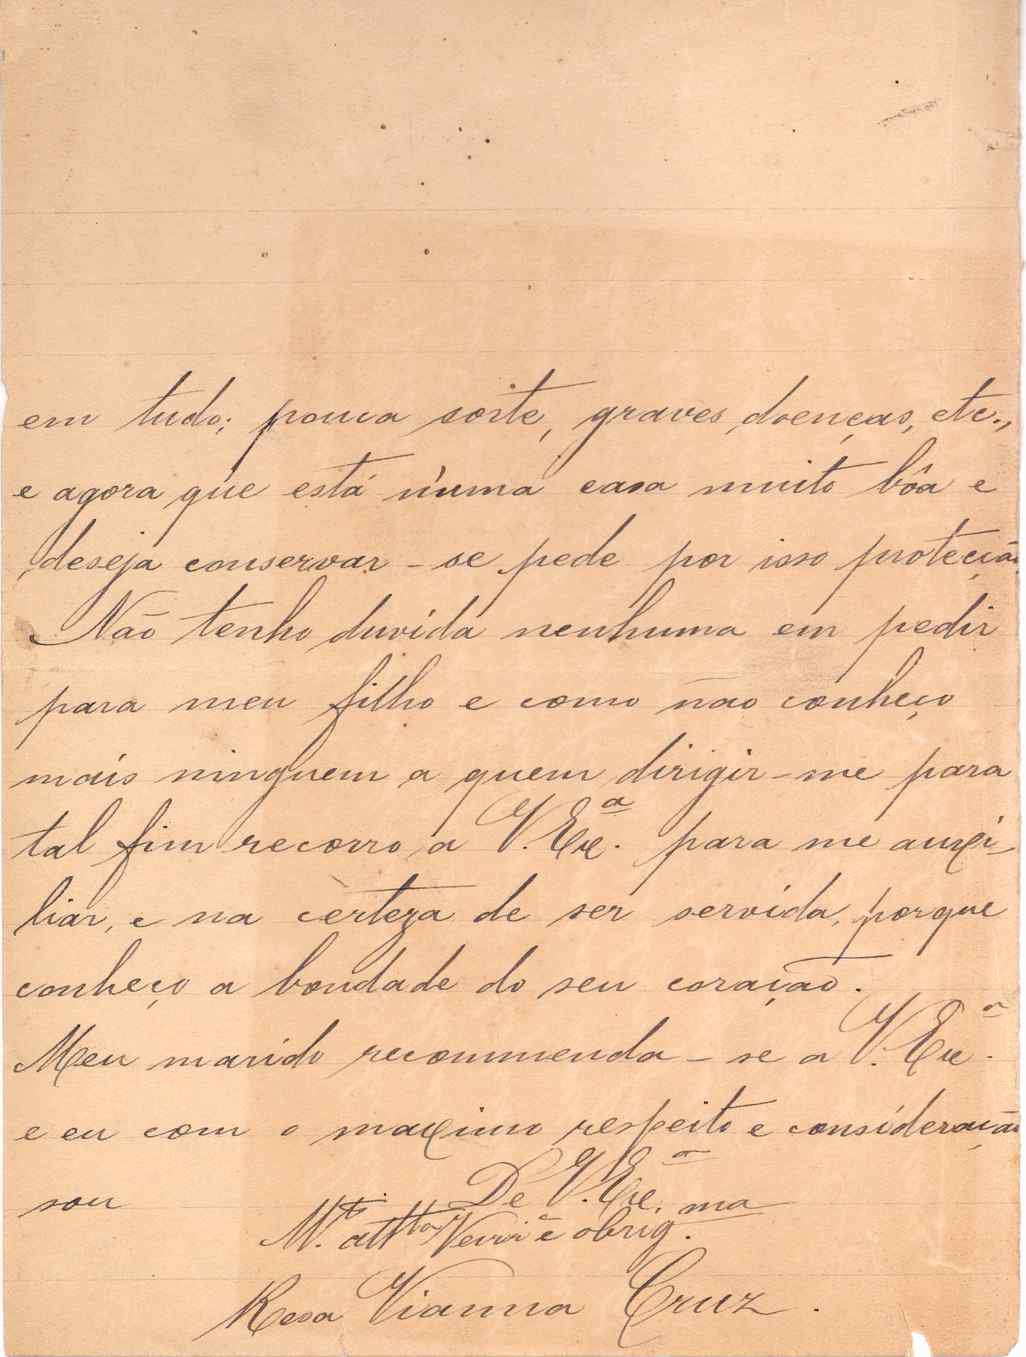 em tudo; pouca sorte, graves doenças, etc.,
e agora que está n'uma casa muito bôa e
deseja conservar-se pede por isso protecção.
Não tenho duvida nenhuma em pedir
para meu filho e como não conheço
mais ninguem a quem dirigir-me para
tal fim recorro a V. Exª. para me auxi-
liar, e na certeza de ser servida, porque
conheço a bondade do seu coração.
Meu marido recommenda-se a V. Exª.
e eu com o maximo respeito e consideração
sou De V. Exª.
Mᵗº. attᵗᵃ Venʳª e obrigᵐᵃ.
Rosa Vianna Cruz.